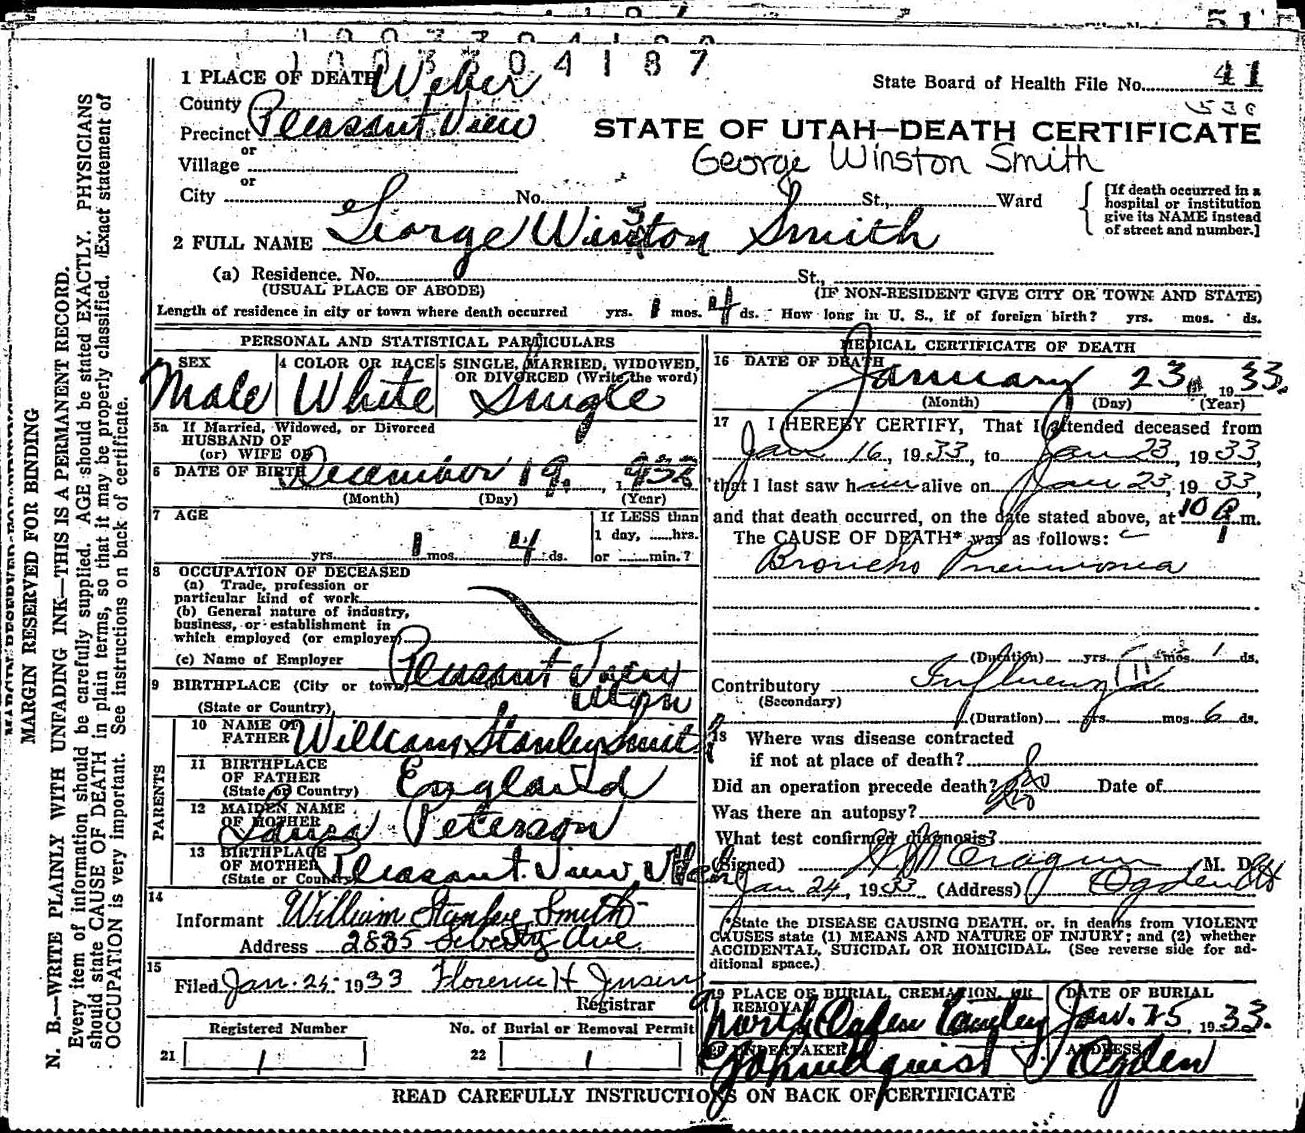 1003304187
1 PLACE OF DEATH
State Board of Health File No. 41
County Weber
530
Precinct Pleasant View
STATE OF UTAH—DEATH CERTIFICATE
or
Village
George Winston Smith
or
City No. St., Ward
[If death occurred in a
hospital or institution
give its NAME instead
of street and number.]
2 FULL NAME George Winston Smith
(a) Residence. No. St.,
(USUAL PLACE OF ABODE) (IF NON-RESIDENT GIVE CITY OR TOWN AND STATE)
Length of residence in city or town where death occurred yrs. 1 mos. 4 ds. How long in U. S., if of foreign birth? yrs. mos. ds.
PERSONAL AND STATISTICAL PARTICULARS
SEX Male
4 COLOR OR RACE White
5 SINGLE, MARRIED, WIDOWED,
OR DIVORCED (Write the word)
Single
5a If Married, Widowed, or Divorced
HUSBAND OF
(or) WIFE OF
6 DATE OF BIRTH December 19, 1932
(Month) (Day) (Year)
7 AGE
If LESS than
1 day, hrs.
yrs. 1 mos. 4 ds. or min.?
8 OCCUPATION OF DECEASED
(a) Trade, profession or
particular kind of work
(b) General nature of industry,
business, or establishment in
which employed (or employer)
(c) Name of Employer
9 BIRTHPLACE (City or town) Pleasant View
(State or Country) Utah
PARENTS
10 NAME OF
FATHER William Stanley Smith
11 BIRTHPLACE
OF FATHER
(State or Country) England
12 MAIDEN NAME
OF MOTHER Peterson
13 BIRTHPLACE
OF MOTHER
(State or Country) Pleasant View Utah
14
Informant William Stanley Smith
Address 2835 Liberty Ave
15
Filed Jan. 25, 1933 Florence H
Registrar
Registered Number
21 1
No. of Burial or Removal Permit
22 1
MEDICAL CERTIFICATE OF DEATH
16 DATE OF DEATH
January 23, 1933.
(Month) (Day) (Year)
17 I HEREBY CERTIFY, That I attended deceased from
Jan 16, 1933, to Jan 23, 1933,
that I last saw him alive on Jan 23, 1933,
and that death occurred, on the date stated above, at 10 P m.
The CAUSE OF DEATH* was as follows:
Broncho Pneumonia
(Duration) yrs. mos. 1 ds.
Contributory Influenza
(Secondary)
(Duration) yrs. mos. 6 ds.
18 Where was disease contracted
if not at place of death?
Did an operation precede death? No Date of
Was there an autopsy? No
What test confirmed diagnosis?
(Signed) Cragun M. D.
Jan 24, 1933 (Address) Ogden Ut
*State the DISEASE CAUSING DEATH, or, in deaths from VIOLENT
CAUSES state (1) MEANS AND NATURE OF INJURY; and (2) whether
ACCIDENTAL, SUICIDAL OR HOMICIDAL. (See reverse side for ad-
ditional space.)
19 PLACE OF BURIAL, CREMATION, OR
REMOVAL
North Ogden
DATE OF BURIAL
Jan. 25, 1933.
20 UNDERTAKER
ADDRESS
Ogden
READ CAREFULLY INSTRUCTIONS ON BACK OF CERTIFICATE
MARGIN RESERVED FOR BINDING
N. B.—WRITE PLAINLY WITH UNFADING INK—THIS IS A PERMANENT RECORD.
Every item of information should be carefully supplied. AGE should be stated EXACTLY. PHYSICIANS
should state CAUSE OF DEATH in plain terms, so that it may be properly classified. Exact statement of
OCCUPATION is very important. See instructions on back of certificate.